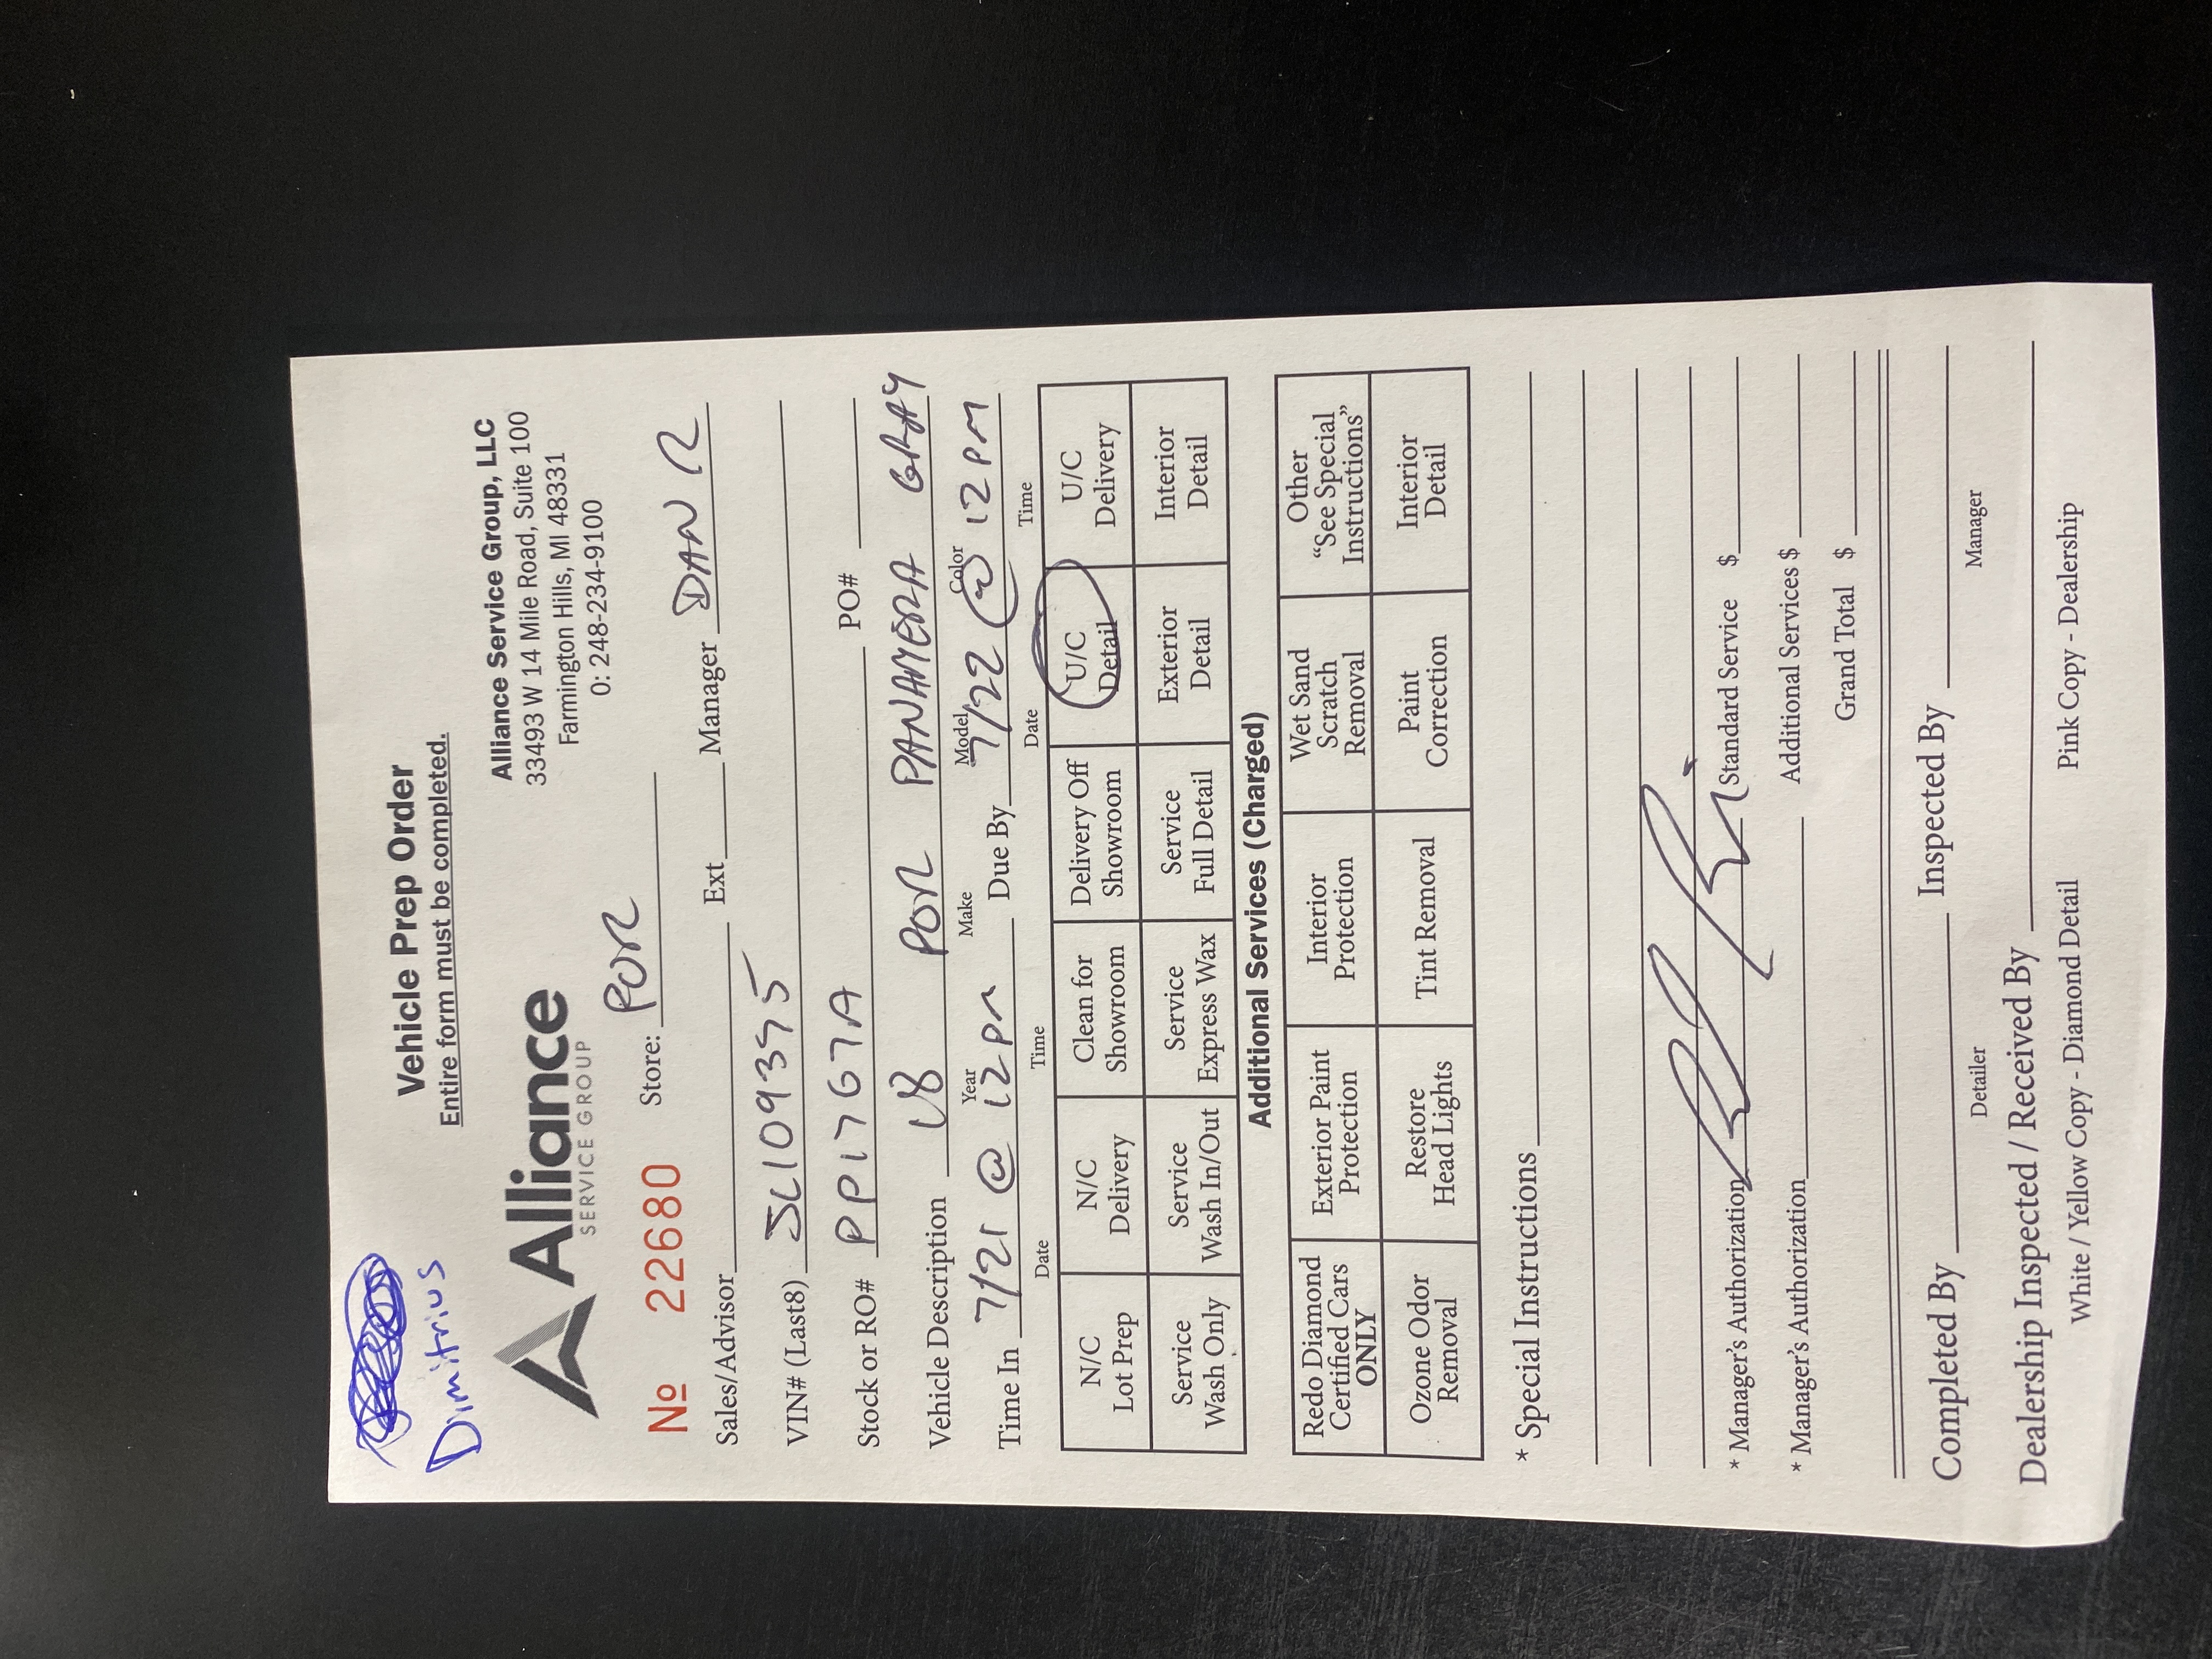 Dimitrius
Vehicle Prep Order
Entire form must be completed.
Alliance
SERVICE GROUP
Alliance Service Group, LLC
33493 W 14 Mile Road, Suite 100
Farmington Hills, MI 48331
0: 248-234-9100
№ 22680 Store: POR
Sales/Advisor Ext Manager DAN R
VIN# (Last8) JL109375
Stock or RO# PP1767A PO#
Vehicle Description 18 POR PANAMERA GRAY
Year Make Model Color
Time In 7/21 @ 12pm Due By 7/22 @ 12PM
Date Time Date Time
N/C Lot Prep N/C Delivery Clean for Showroom Delivery Off Showroom U/C Detail U/C Delivery
Service Wash Only Service Wash In/Out Service Express Wax Service Full Detail Exterior Detail Interior Detail
Additional Services (Charged)
Redo Diamond Certified Cars ONLY Exterior Paint Protection Interior Protection Wet Sand Scratch Removal Other "See Special Instructions"
Ozone Odor Removal Restore Head Lights Tint Removal Paint Correction Interior Detail
* Special Instructions
* Manager's Authorization Standard Service $
* Manager's Authorization Additional Services $
Grand Total $
Completed By Inspected By
Detailer Manager
Dealership Inspected / Received By
White / Yellow Copy - Diamond Detail Pink Copy - Dealership